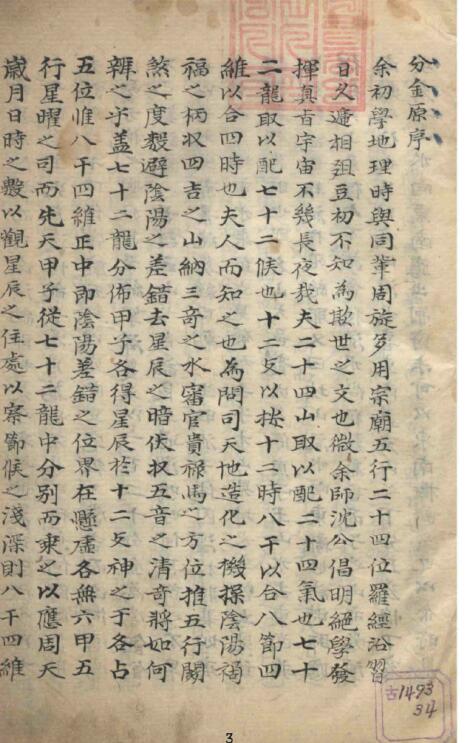 分金原序
余初學地理時與同輩周旋多用宗廟五行二十四位羅經沿習
日久遞相俎豆初不知為欺世之文也微余師沈公倡明絕學發
揮真旨宇宙不幾長夜哉夫二十四山取以配二十四氣也七十
二龍取以配七十二候也十二支以按十二時八干以合八節四
維以合四時也夫人而知之也為問司天地造化之機操陰陽禍
福之柄収四吉之山納三奇之水審官貴祿馬之方位推五行關
煞之度數避陰陽之差錯去星辰之暗伏収五音之清奇將如何
辨之乎盖七十二龍分佈甲子各得星辰於十二支神之于各占
五位惟八干四維正中即陰陽差錯之位界在懸虛各無六甲五
行星曜之司而先天甲子從七十二龍中分別而乘之以應周天
歲月日時之數以觀星辰之住處以察節候之淺深則八干四維
古1493
34
3